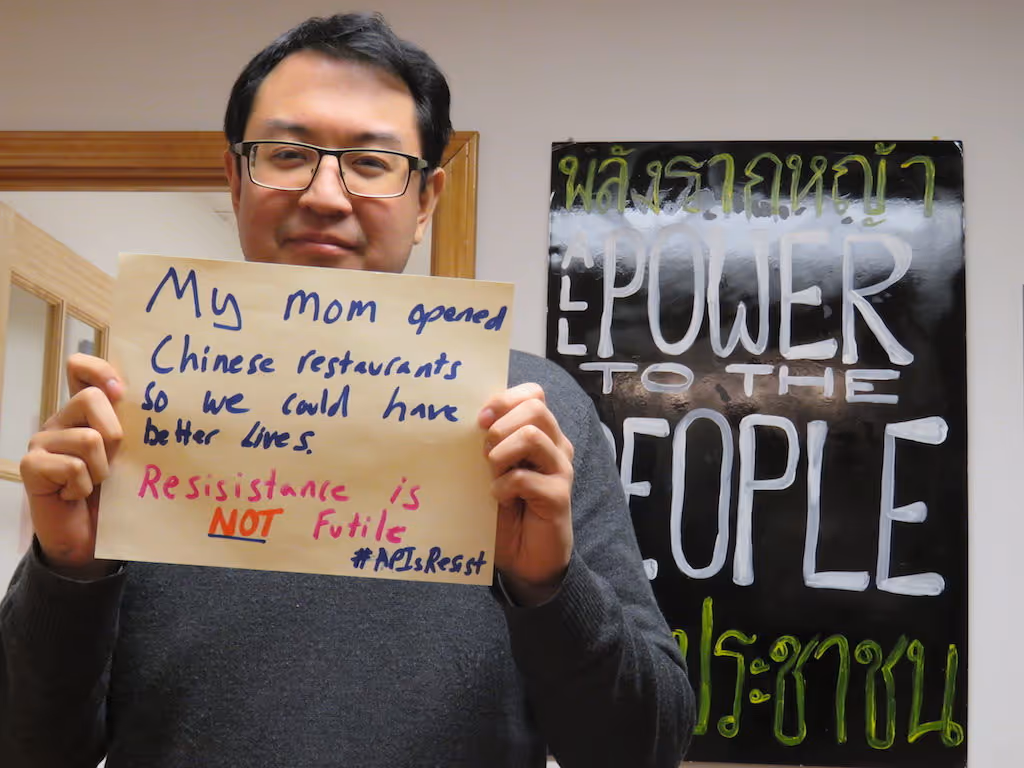 My mom opened
Chinese restaurants
so we could have
better lives.
Resisistance is
NOT Futile
#APIsResist
พลังรากหญ้า
ALL POWER
TO THE
PEOPLE
ประชาชน